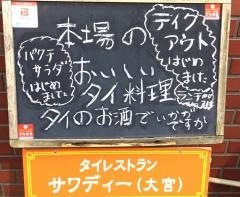 本場の
おいしい
タイ料理
タイのお酒でいかがですか
テイク
アウト
はじめ
ました
パクチ
サラダ
はじめ
ました
タイレストラン
サワディー(大宮)